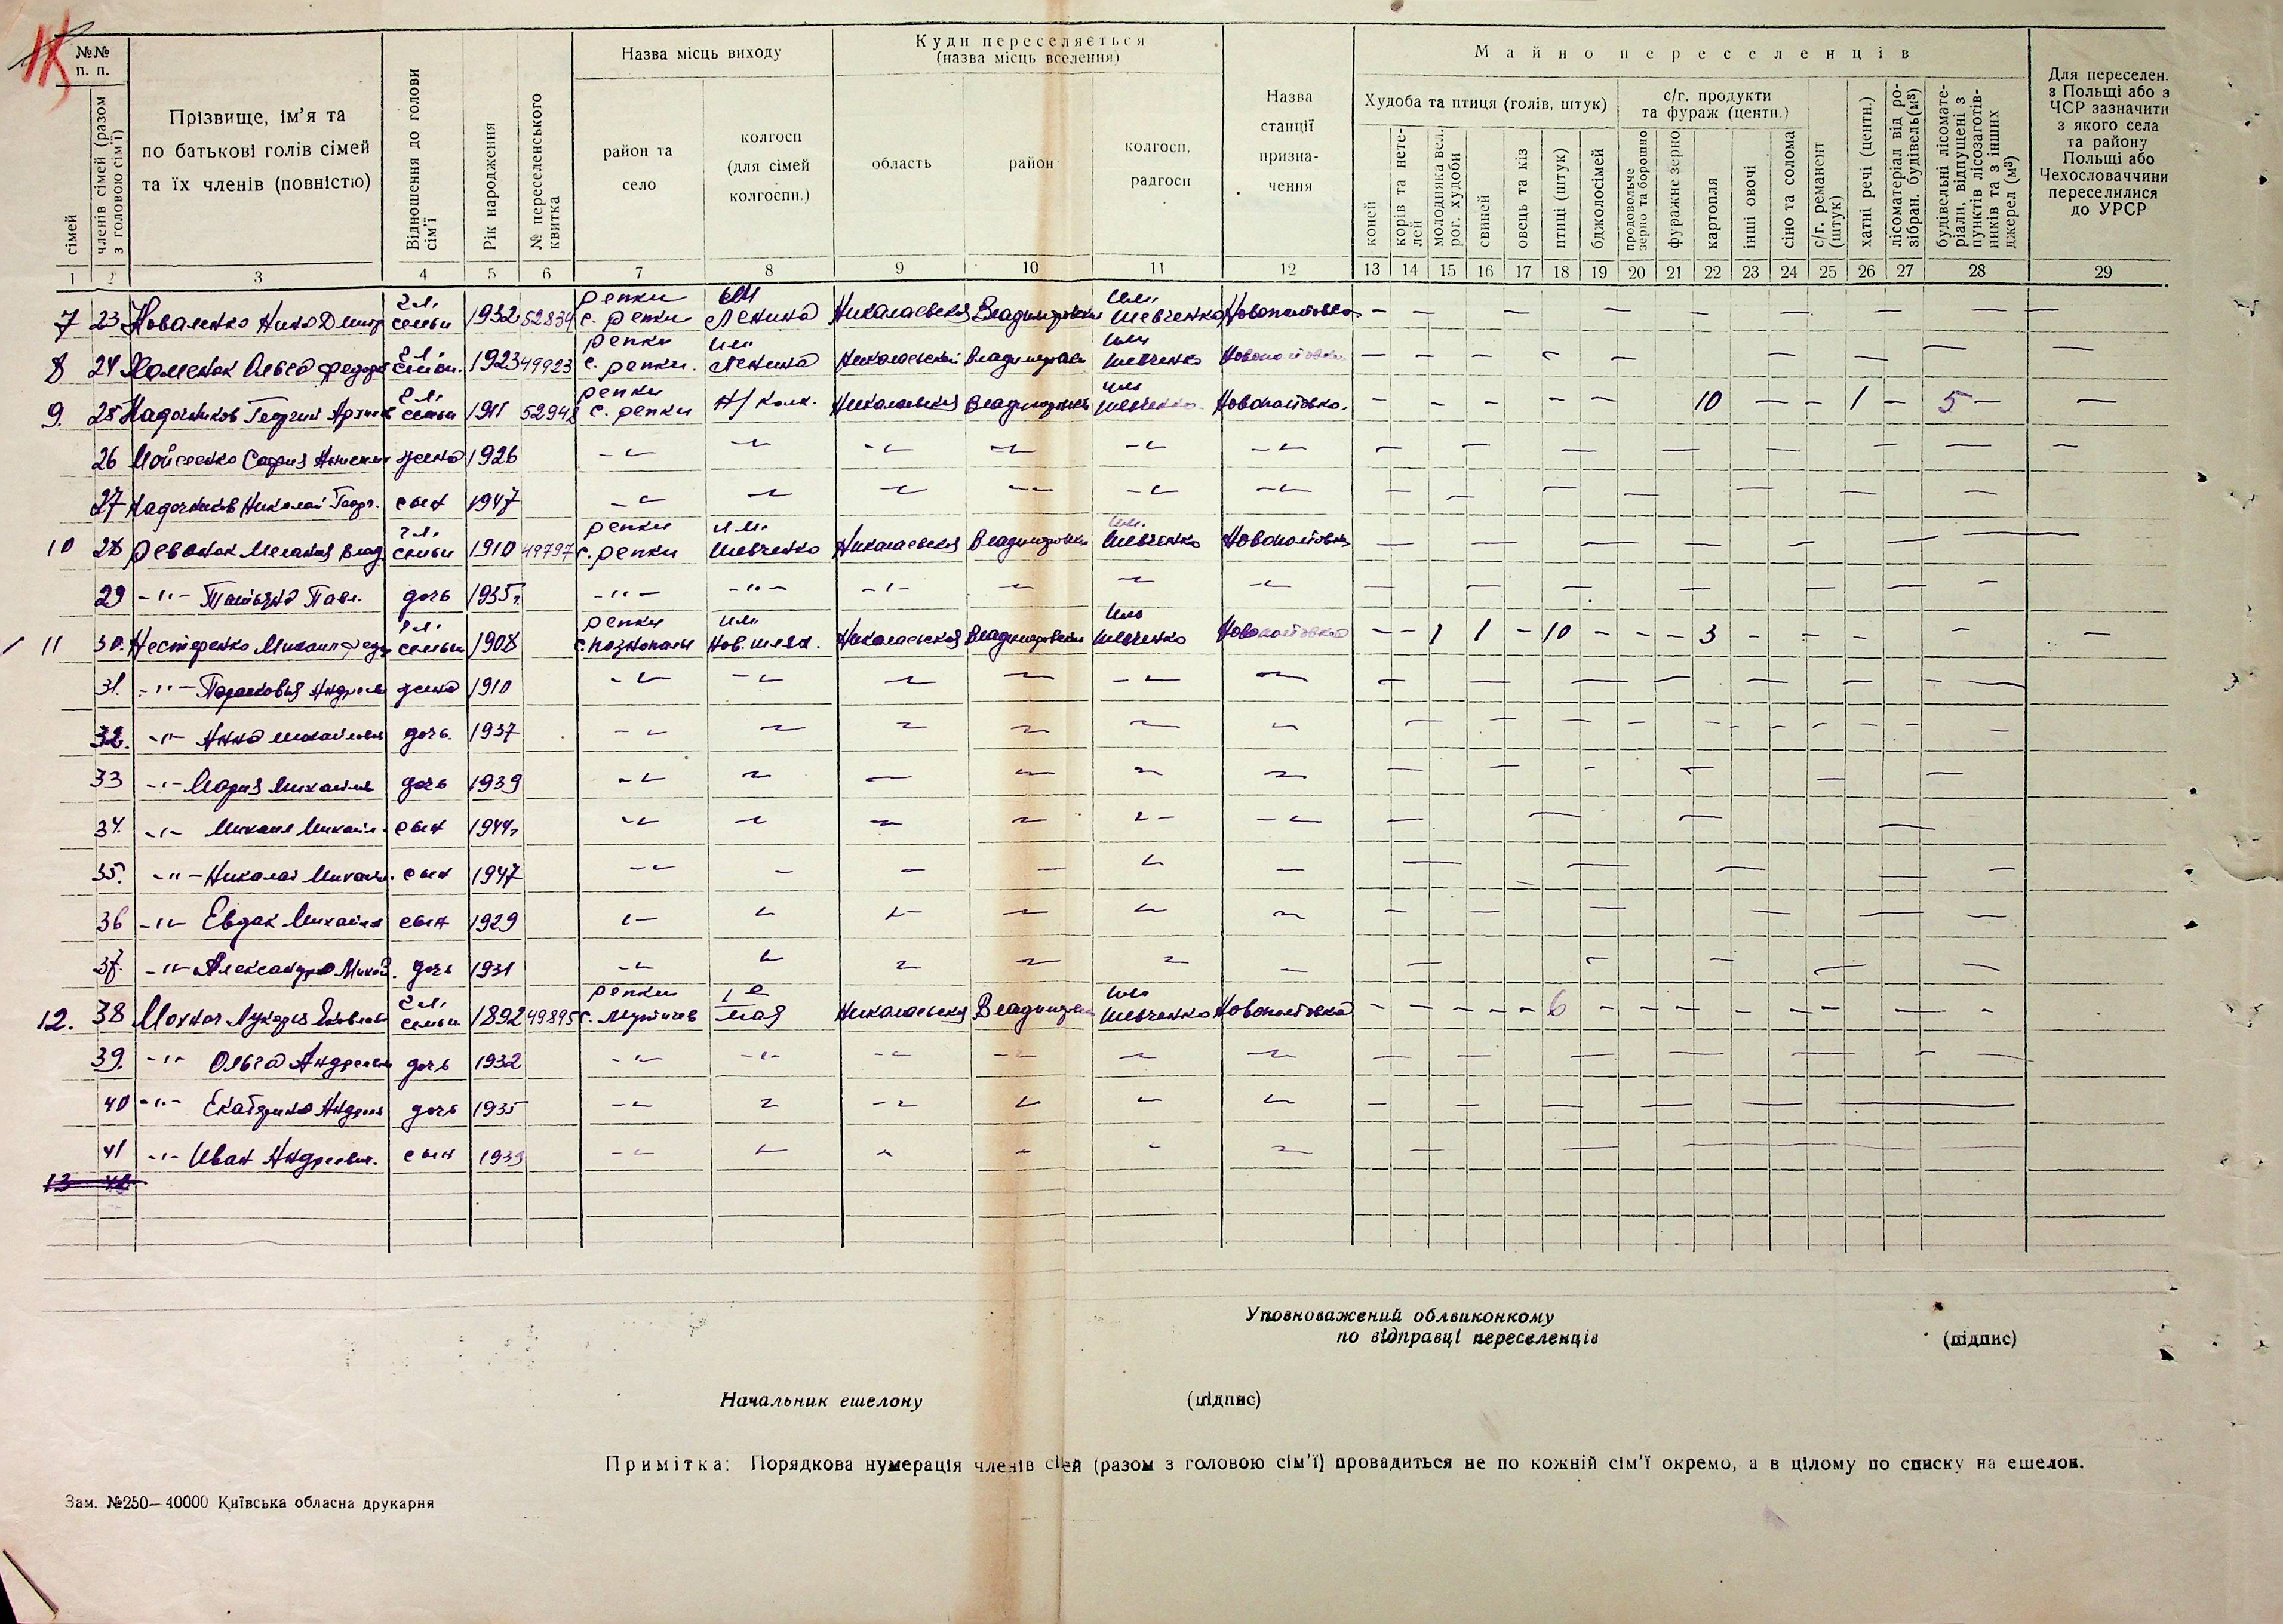 №№ п. п.
сімей
членів сімей (разом з головою сім'ї)
Прізвище, ім'я та по батькові голів сімей та їх членів (повністю)
Відношення до голови сім'ї
Рік народження
№ переселенського квитка
Назва місць виходу
район та село
колгосп (для сімей колгоспн.)
Куди переселяється (назва місць вселення)
область
район
колгосп, радгосп
Назва станції призна-чення
Майно переселенців
Худоба та птиця (голів, штук)
коней
корів та нете-лей
молодняка вел. рог. худоби
свиней
овець та кіз
птиці (штук)
бджолосімей
с/г. продукти та фураж (центн.)
продовольче зерно та борошно
фуражне зерно
картопля
інші овочі
сіно та солома
с/г. реманент (штук)
хатні речі (центн.)
лісоматеріал від ро-зібран. будівель(м³)
будівельні лісомате-ріали, відпущені з пунктів лісозаготів-ників та з інших джерел (м³)
Для переселен. з Польщі або з ЧСР зазначити з якого села та району Польщі або Чехословаччини переселилися до УРСР
1 2 3 4 5 6 7 8 9 10 11 12 13 14 15 16 17 18 19 20 21 22 23 24 25 26 27 28 29
7 23 Коваленко Нина Дмитр гл. семьи 1932 52834 репки с. репки им Ленина Николаевская Владимировски им. Шевченко Новополтовка — — — — — — — —
8 24 Хоменок Ольга Федор гл. семьи. 1923 49923 репки с. репки. им Ленина Николаевский Владимировски им Шевченко Новополтовка — — — — — — — —
9. 25 Надточиков Георгий гл. семьи 1911 52948 репки с. репки Н/колх. Николаевская Владимировски им Шевченко Новополтовка. — — — — — — 10 — — 1 — 5 — —
26 Мойсеенко София жена 1926
27 Надточиков Николай Георг. сын 1947
10 28 Ревонок Мелания Влад. гл. семьи 1910 49797 репки с. репки им. Шевченко Николаевская Владимировски им. Шевченко Новополтовка
29 -"- Татьяна Павл. дочь 1935г
11 30. Нестеренко Михаил Федор гл. семьи 1908 репки им Нов. шлях. Николаевская Владимировски им Шевченко Новополтовка — — 1 1 — 10 — — — 3 — — — — — —
31. -"- Парасковья Андреев жена 1910
32. -"- Анна Михайлов дочь. 1937
33 -"- Мария Михайлов дочь 1939
34. -"- Михаил Михайл. сын 1944г
35. -"- Николай Михайл. сын 1947
36 -"- Евдак Михайлов сын 1929
37. -"- Александра Михай. дочь 1931
12. 38 Мохноч Лукерия Яковлев гл. семьи 1892 49895 репки 1е мая Николаевская Владимиров им Шевченко Новополтовка — — — — — 6 — — — — — — — —
39. -"- Ольга Андреевн дочь 1932
40 -"- Екатерина Андреев дочь 1935
41 -"- Иван Андреевич. сын 1939
13 42
Уповноважений облвиконкому
по відправці переселенців (підпис)
Начальник ешелону (підпис)
Примітка: Порядкова нумерація членів сімей (разом з головою сім'ї) провадиться не по кожній сім'ї окремо, а в цілому по списку на ешелон.
Зам. №250—40000 Київська обласна друкарня